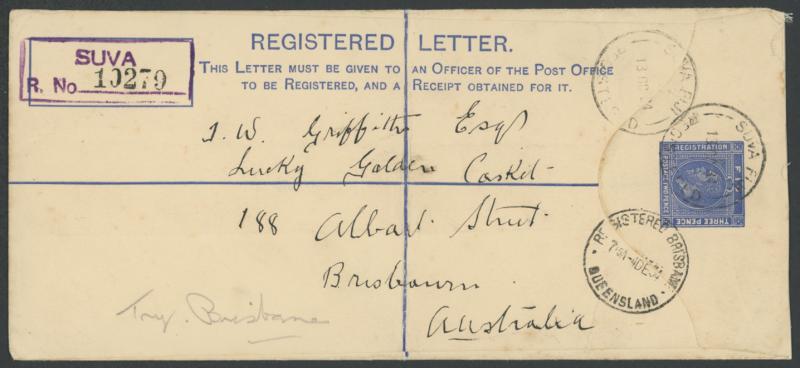 SUVA
R. No 10279
REGISTERED LETTER.
THIS LETTER MUST BE GIVEN TO AN OFFICER OF THE POST OFFICE
TO BE REGISTERED, AND A RECEIPT OBTAINED FOR IT.
J. W. Griffith Esqr
Lucky Golden Casket
188 Albert Street
Brisbourn
Australia
Try. Brisbane
SUVA FIJI
SUVA FIJI
REGISTRATION
POSTAGE TWO PENCE
FIJI
THREE PENCE
REGISTERED BRISBANE
4DE34
QUEENSLAND